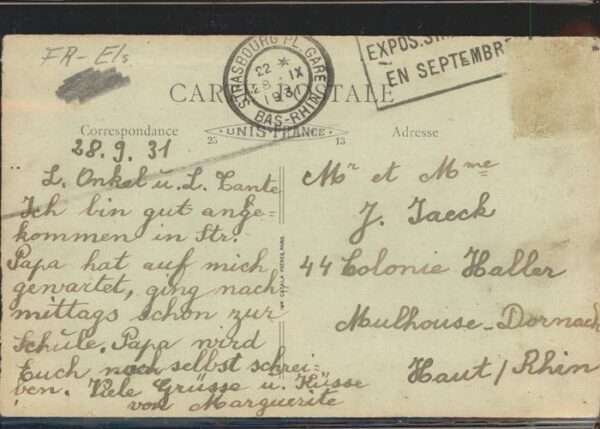 FR-Els
STRASBOURG PL. GARE
22 *
28 - IX
1931
BAS-RHIN
EXPOS.
EN SEPTEMBRE
CARTE POSTALE
Correspondance
25 UNIS FRANCE 13
Adresse
28.9.31
L. Onkel u. L. Tante
Ich bin gut ange-
kommen in Str.
Papa hat auf mich
gewartet, ging nach
mittags schon zur
Schule. Papa wird
Euch noch selbst schrei=
ben. Viele Grüsse u. Küsse
von Marguerite
Mr et Mme
J. Jaeck
44 Colonie Haller
Mulhouse-Dornach
Haut/Rhin